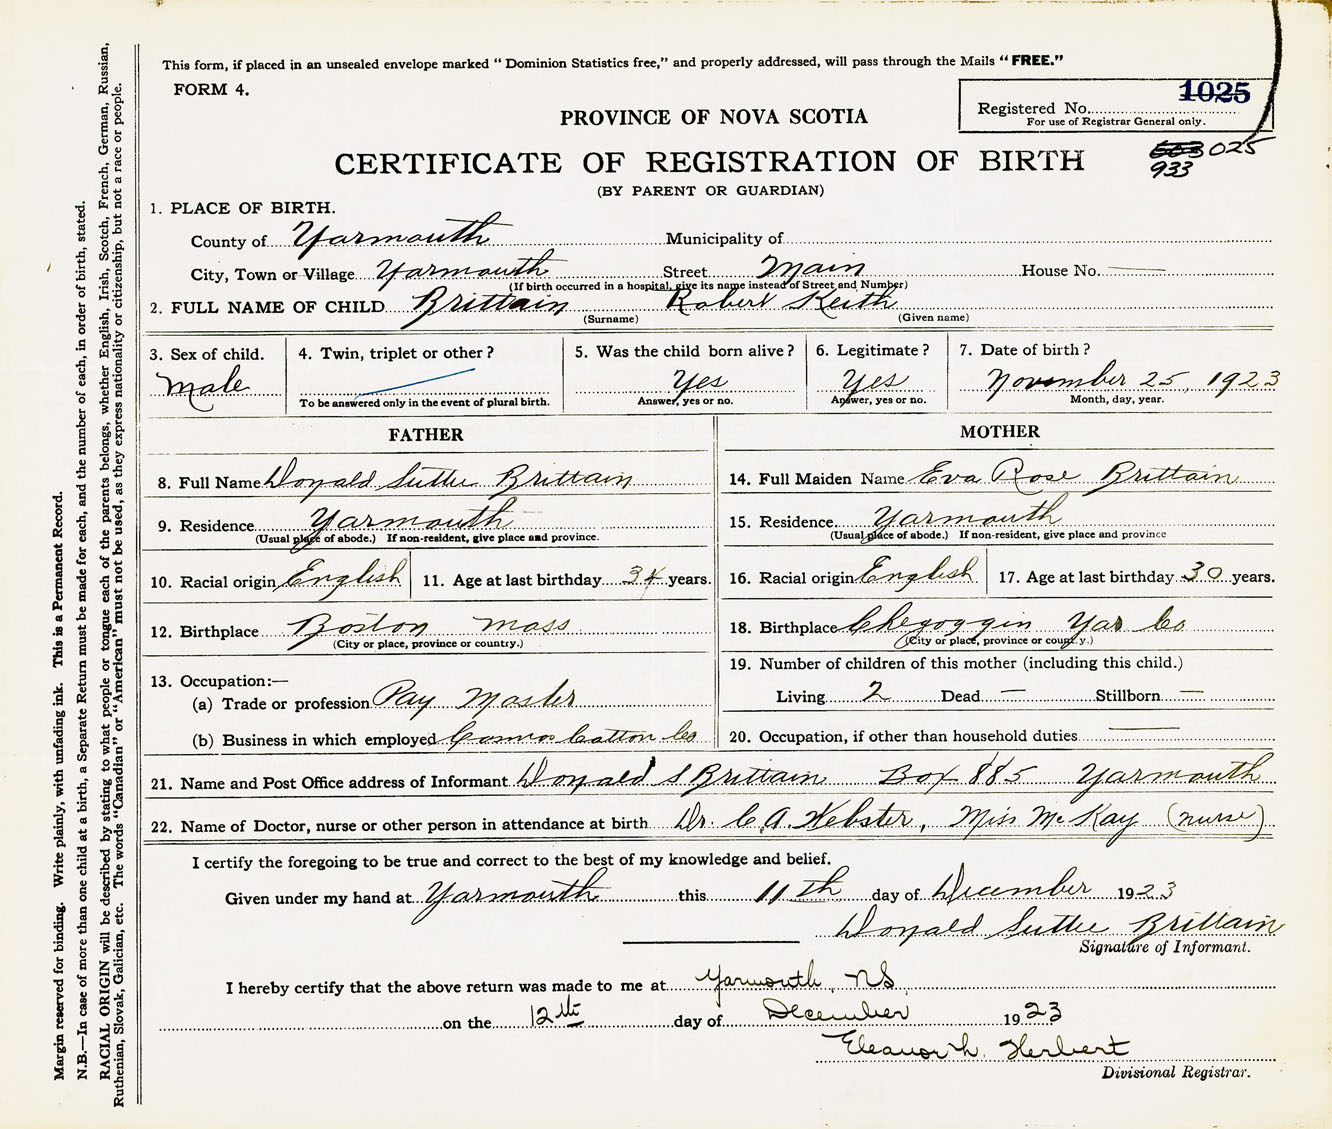 This form, if placed in an unsealed envelope marked “ Dominion Statistics free,” and properly addressed, will pass through the Mails “ FREE.”
FORM 4.
1025
Registered No.
For use of Registrar General only.
PROVINCE OF NOVA SCOTIA
CERTIFICATE OF REGISTRATION OF BIRTH
025
933
(BY PARENT OR GUARDIAN)
1. PLACE OF BIRTH.
County of Yarmouth Municipality of
City, Town or Village Yarmouth Street Main House No. —
(If birth occurred in a hospital, give its name instead of Street and Number)
2. FULL NAME OF CHILD Brittain Robert Keith
(Surname) (Given name)
3. Sex of child. 4. Twin, triplet or other ? 5. Was the child born alive ? 6. Legitimate ? 7. Date of birth ?
Male Yes Yes November 25, 1923
To be answered only in the event of plural birth. Answer, yes or no. Answer, yes or no. Month, day, year.
FATHER MOTHER
8. Full Name Donald Suttie Brittain 14. Full Maiden Name Eva Rose Brittain
9. Residence Yarmouth 15. Residence Yarmouth
(Usual place of abode.) If non-resident, give place and province. (Usual place of abode.) If non-resident, give place and province
10. Racial origin English 11. Age at last birthday 34 years. 16. Racial origin English 17. Age at last birthday 30 years.
12. Birthplace Boston Mass 18. Birthplace Chegoggin Yar Co
(City or place, province or country.) (City or place, province or county.)
19. Number of children of this mother (including this child.)
13. Occupation:—
(a) Trade or profession Pay Master Living 2 Dead — Stillborn —
(b) Business in which employed Cosmos Cotton Co 20. Occupation, if other than household duties —
21. Name and Post Office address of Informant Donald S Brittain Box 885 Yarmouth
22. Name of Doctor, nurse or other person in attendance at birth Dr. C. A. Webster, Miss McKay (nurse)
I certify the foregoing to be true and correct to the best of my knowledge and belief.
Given under my hand at Yarmouth this 11th day of December 1923
Donald Suttie Brittain
Signature of Informant.
I hereby certify that the above return was made to me at Yarmouth, NS
on the 12th day of December 1923
Eleanor L. Herbert
Divisional Registrar.
Margin reserved for binding. Write plainly, with unfading ink. This is a Permanent Record.
N.B.—In case of more than one child at a birth, a Separate Return must be made for each, and the number of each, in order of birth, stated.
RACIAL ORIGIN will be described by stating to what people or tongue each of the parents belongs, whether English, Irish, Scotch, French, German, Russian,
Ruthenian, Slovak, Galician, etc. The words “Canadian” or “American” must not be used, as they express nationality or citizenship, but not a race or people.